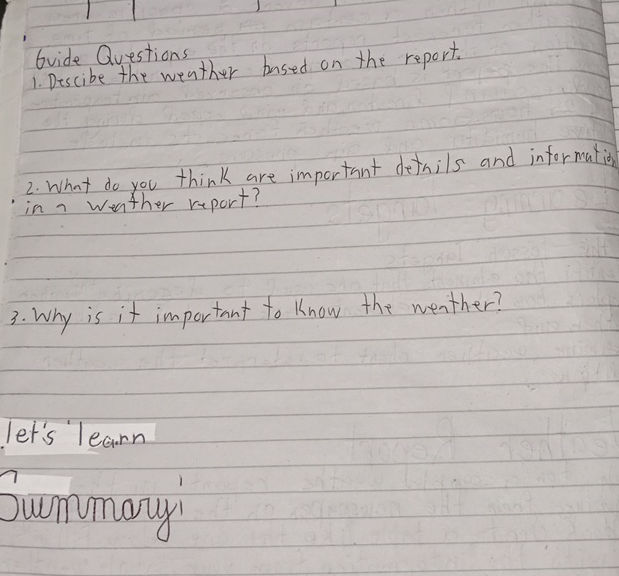 Guide Questions
1. Descibe the weather based on the report.
2. What do you think are important details and information
in a weather report?
3. Why is it important to know the weather?
let's learn
Summary: